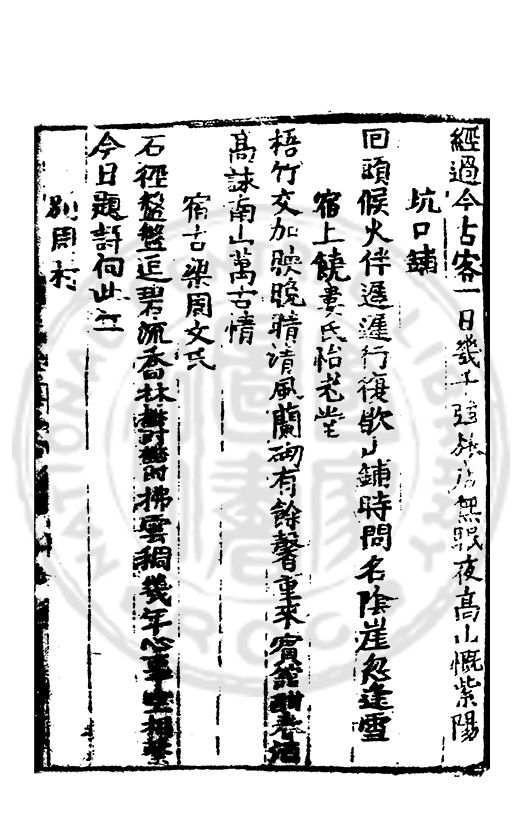 經過今古客一日幾千強旅店無眠夜高山慨紫陽
坑口鋪
回頭候火伴遲遲行復歇小鋪時問名陰崖忽逢雪
宿上饒婁氏怡老堂
梧竹交加映晚晴清風蘭砌有餘馨重來賓館酣春酒
高詠南山萬古情
宿古梁周文氏
石徑盤盤逗碧流喬林拂雲稠幾年心事空相
今日題詩向此
別周村